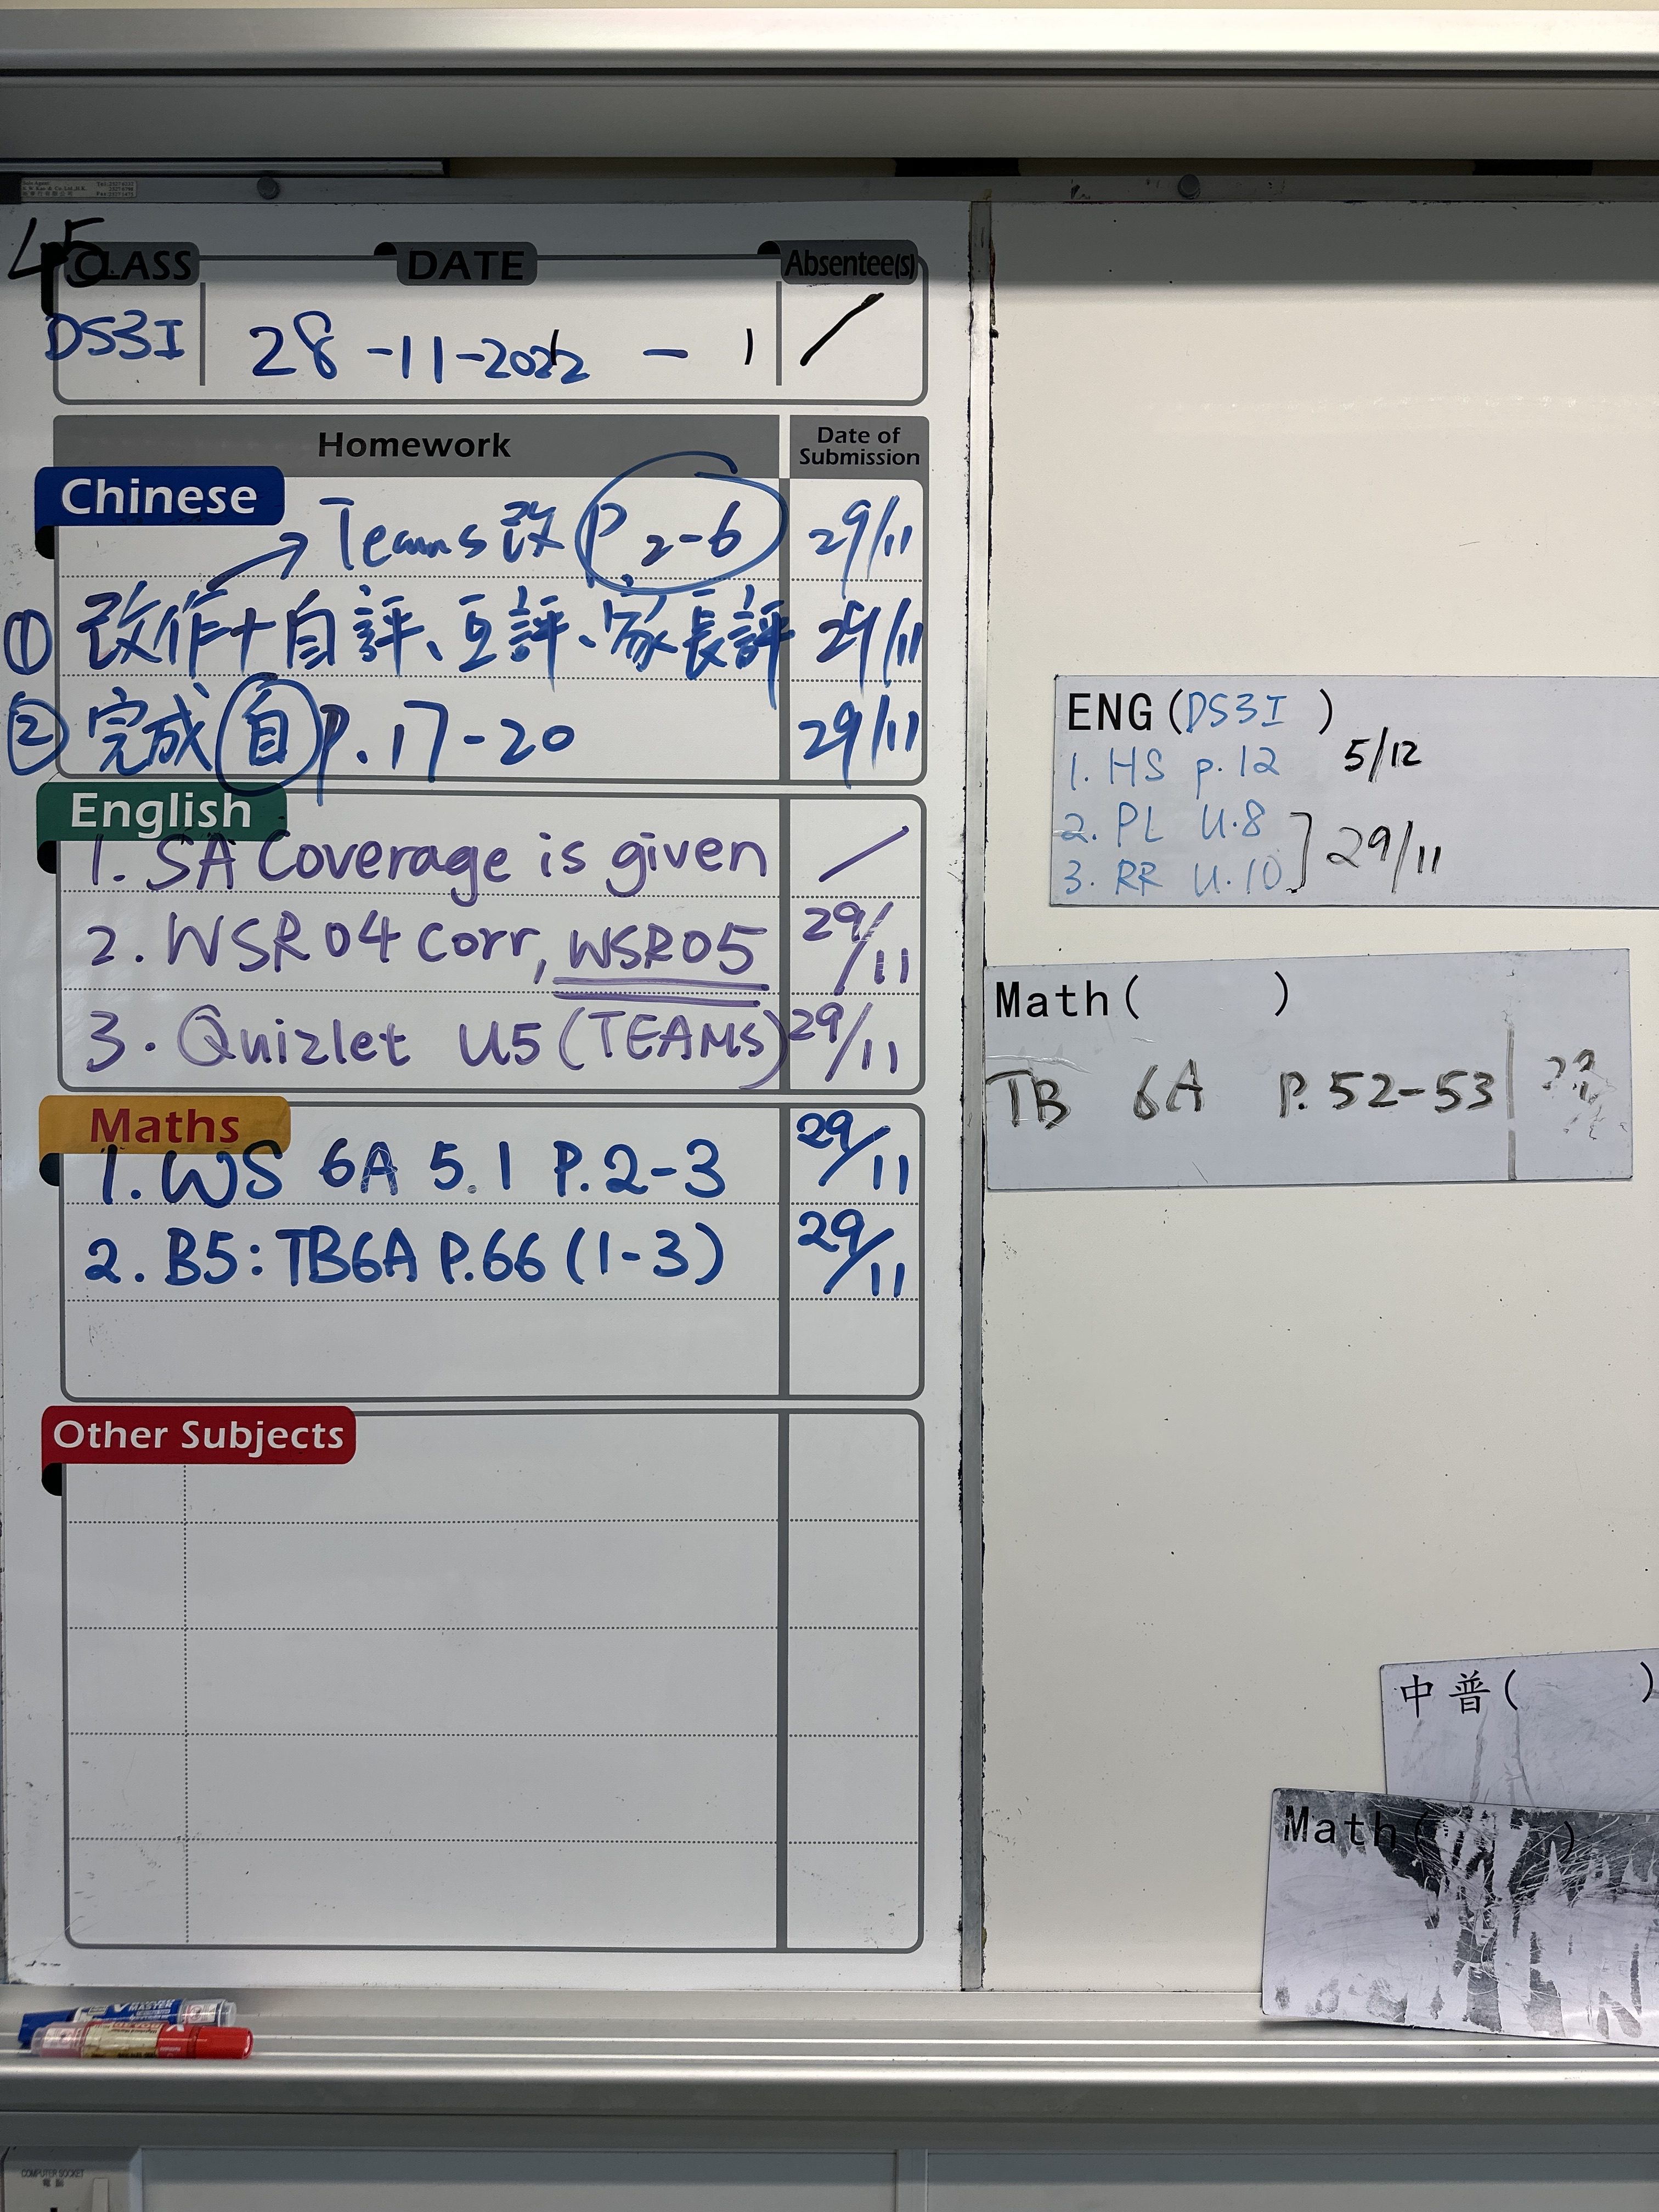 45
CLASS DATE Absentee(s)
DS3I 28-11-2022 - 1 /
Homework Date of Submission
Chinese
→ Teams 改 P 2-6 29/11
① 改作+自評、互評、家長評 29/11
② 完成 自 P.17-20 29/11
English
1. SA Coverage is given /
2. WSR04 Corr, WSR05 29/11
3. Quizlet U5 (TEAMS) 29/11
Maths
1. WS 6A 5.1 P.2-3 29/11
2. B5: TB6A P.66 (1-3) 29/11
Other Subjects
ENG(DS3I )
1. HS p.12 5/12
2. PL U.8
3. RR U.10 ] 29/11
Math( )
TB 6A P.52-53
中普( )
Math( )
COMPUTER SOCKET